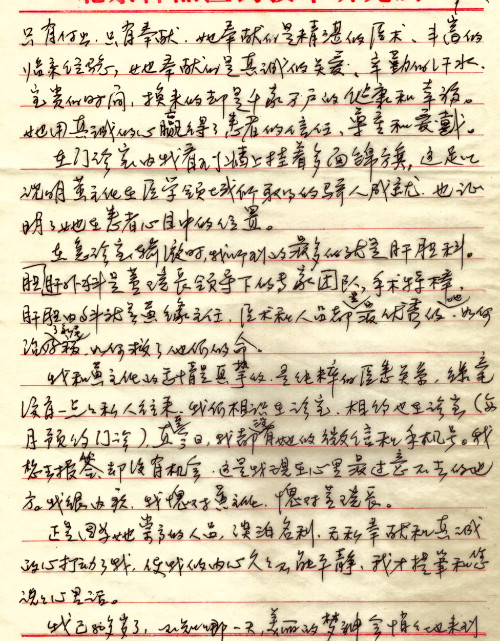 只有付出,只有奉献。她奉献的是精湛的医术、丰富的
临床经验,她奉献的是真诚的关爱、辛勤的汗水、
宝贵的时间,换来的却是千家万户的健康和幸福。
她用真诚的心赢得了患者的信任、尊重和爱戴。
在门诊室内我看到了墙上挂着多面锦旗,这足以
说明黄主任在医学领域所取得的骄人成就,也证
明了她在患者心目中的位置。
在急诊室输液时,我们听到的最多的就是肝胆科。
肝胆外科是董院长领导下的专家团队,手术特棒,
肝胆内科就是黄缘主任,医术和人品都是最优秀的,她如何
治好了和病,如何救了他们的命。
我和黄主任的感情是真挚的,是纯粹的医患关系,丝毫
没有一点点私人往来。我们相识在诊室,相约也在诊室(每
月预约门诊),直至今日,我都没有她的微信和手机号。我
想去报答,却没有机会,这是我现在心里最过意不去的地
方。我很内疚,我愧对黄主任,愧对董院长。
正是因为她崇高的人品,淡泊名利,无私奉献和真诚
的心打动了我,使我的内心久久不能平静,我才提笔和您
说说心里话。
我已 岁了,不知哪一天,美丽的梦神会悄悄地来到